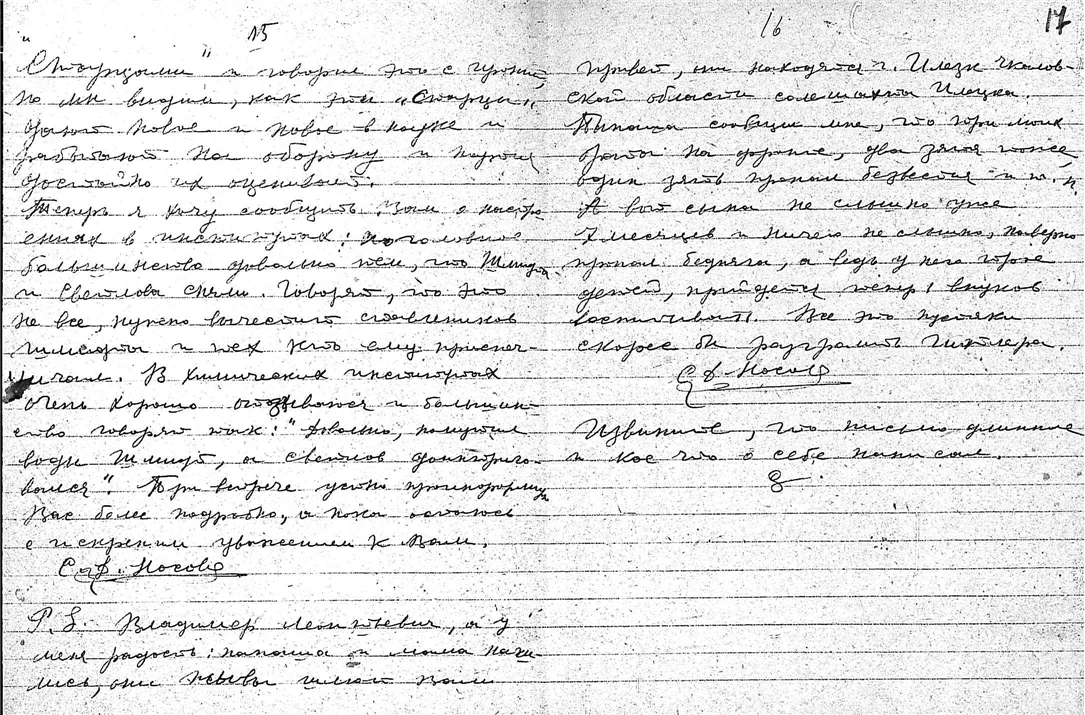 15
„Старцами" и говорил это с иронией,
но мы видим, как эти „Старцы"
дают новое и новое в науке и
работают на оборону и партия
достойно их оценивает.
Теперь я хочу сообщить Вам о настро-
ениях в институтах: поголовное
большинство довольно тем, что Шмидта
и Светлова сняли. Говорят, что это
не все, нужно вычистить ставленников
Шмидта и тех кто ему приспеш-
ничал. В химических институтах
очень хорошо отзываются и большин-
ство говорят так: "Довольно, помутил
воды Шмидт, а Светлов
". При встрече устно проинформирую
Вас более подробно, а пока остаюсь
с искреним уважением к Вам.
С. Ф. Носов
P.S. Владимер Леонтьевич, а у
меня радость: папаша и мама наш-
лись, они живы шлют Вам
16
17
привет, они находятся г. Илецк Чкалов-
ской области солешахта Илецка.
Папаша сообщил мне, что три моих
брата на фронте, два зятя тоже,
один зять пропал безвестно и т. п.
А вот сына не слышно уже
7 месяцев и ничего не слышно, наверно
пропал бедняга, а ведь у него трое
детей, придется теперь внуков
воспитывать. Все это пустяки
скорее бы разгромить Гитлера.
С Ф. Носов
Извините, что письмо длинное
и кое что о себе написал.